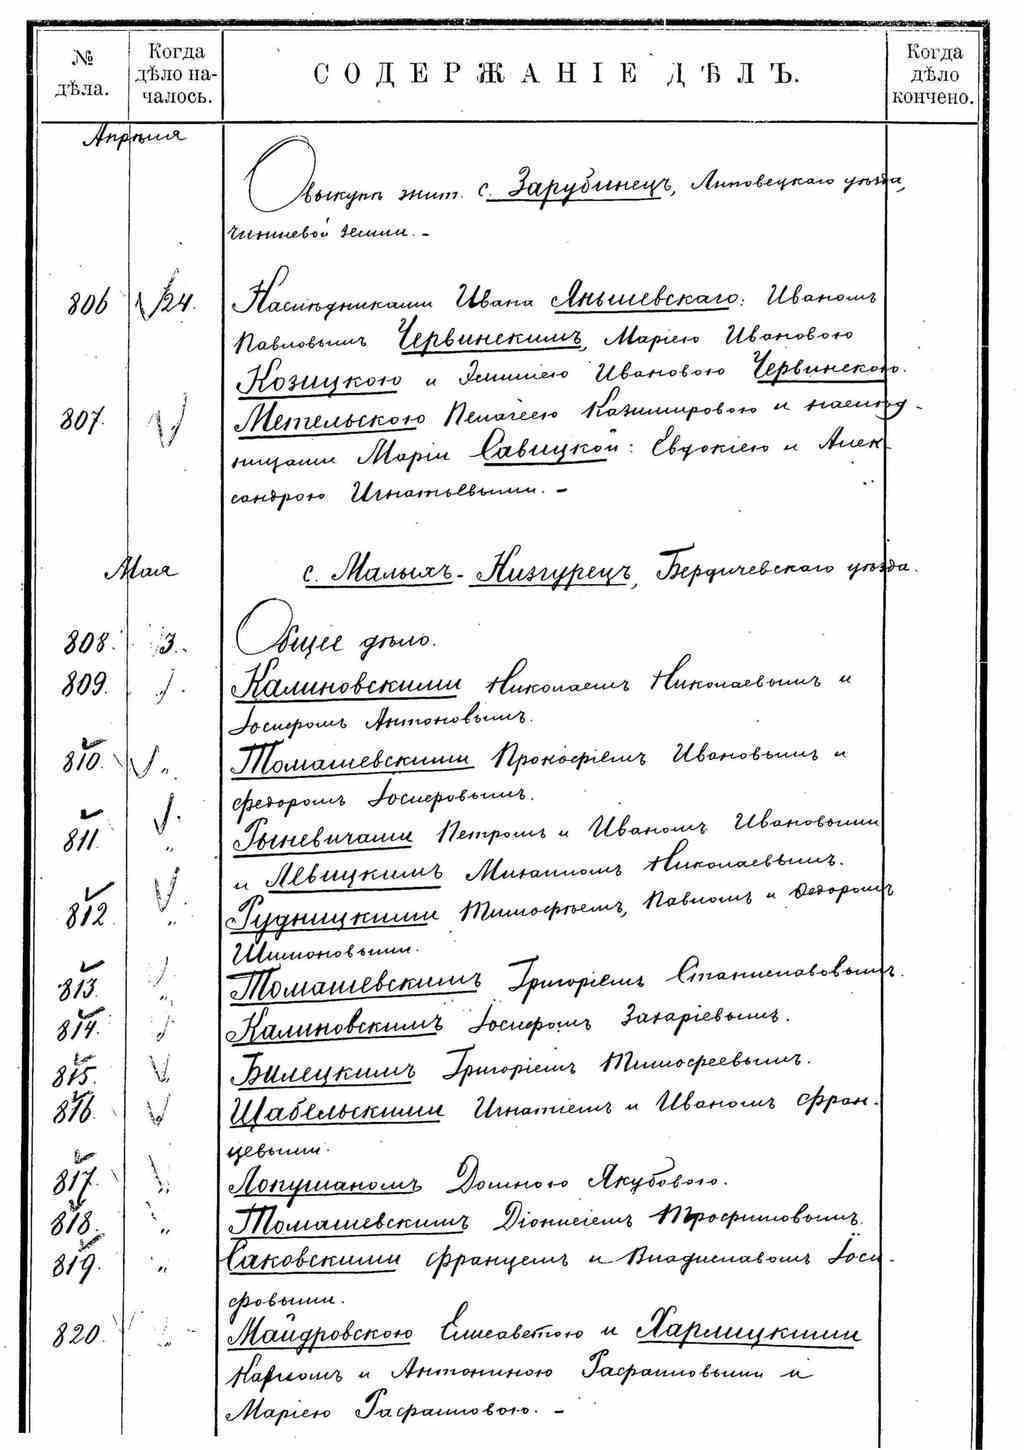 № дѣла. Когда дѣло началось. СОДЕРЖАНІЕ ДѢЛЪ. Когда дѣло кончено.
Апрѣля
О выкупѣ жит. с. Зарубинецъ, Липовецкаго уѣзда,
чиншевой земли. –
806 24. Наслѣдниками Ивана Янышевскаго: Иваномъ
Павловымъ Червинскимъ, Маріею Ивановою
Козицкою и Эмиліею Ивановою Червинскою.
807. Метельскою Пелагеею Казимировою и наслѣд-
ницами Маріи Савицкой: Евдокіею и Алек-
сандрою Игнатьевыми. –
Мая с. Малыхъ-Низгурецъ, Бердичевскаго уѣзда.
808. 3. Общее дѣло.
809. Калиновскими Николаемъ Николаевымъ и
Іосифомъ Антоновымъ.
810. „ Томашевскими Прокофіемъ Ивановымъ и
Федоромъ Іосифовымъ.
811. „ Рыневичами Петромъ и Иваномъ Ивановыми
и Левицкимъ Михаиломъ Николаевымъ.
812. „ Рудницкими Тимофѣемъ, Павломъ и Федоромъ
Шимоновыми.
813. „ Томашевскимъ Григоріемъ Станиславовымъ.
814. Калиновскимъ Іосифомъ Захаріевымъ.
815. „ Билецкимъ Григоріемъ Тимофеевымъ.
816. „ Щабельскими Игнатіемъ и Иваномъ Фран-
цевыми.
817. „ Лопушаномъ Домною Якубовою.
818. „ Томашевскимъ Діонисіемъ Трофимовымъ.
819. „ Саковскими Францемъ и Владиславомъ Іоси-
фовыми.
820. „ Майдровскою Елисаветою и Харлицкими
Карпомъ и Антониною Рафаиловыми и
Маріею Рафаиловою. –